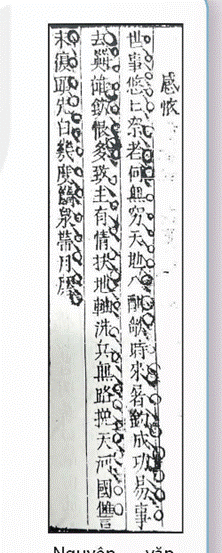 感懷
世事悠〻奈老何無穷天地入酣歌時來屠釣成功易事
去英雄飲恨多致主有情扶地軸洗兵無路挽天河國讐
未復頭先白幾度龍泉帶月磨
Nguyên văn